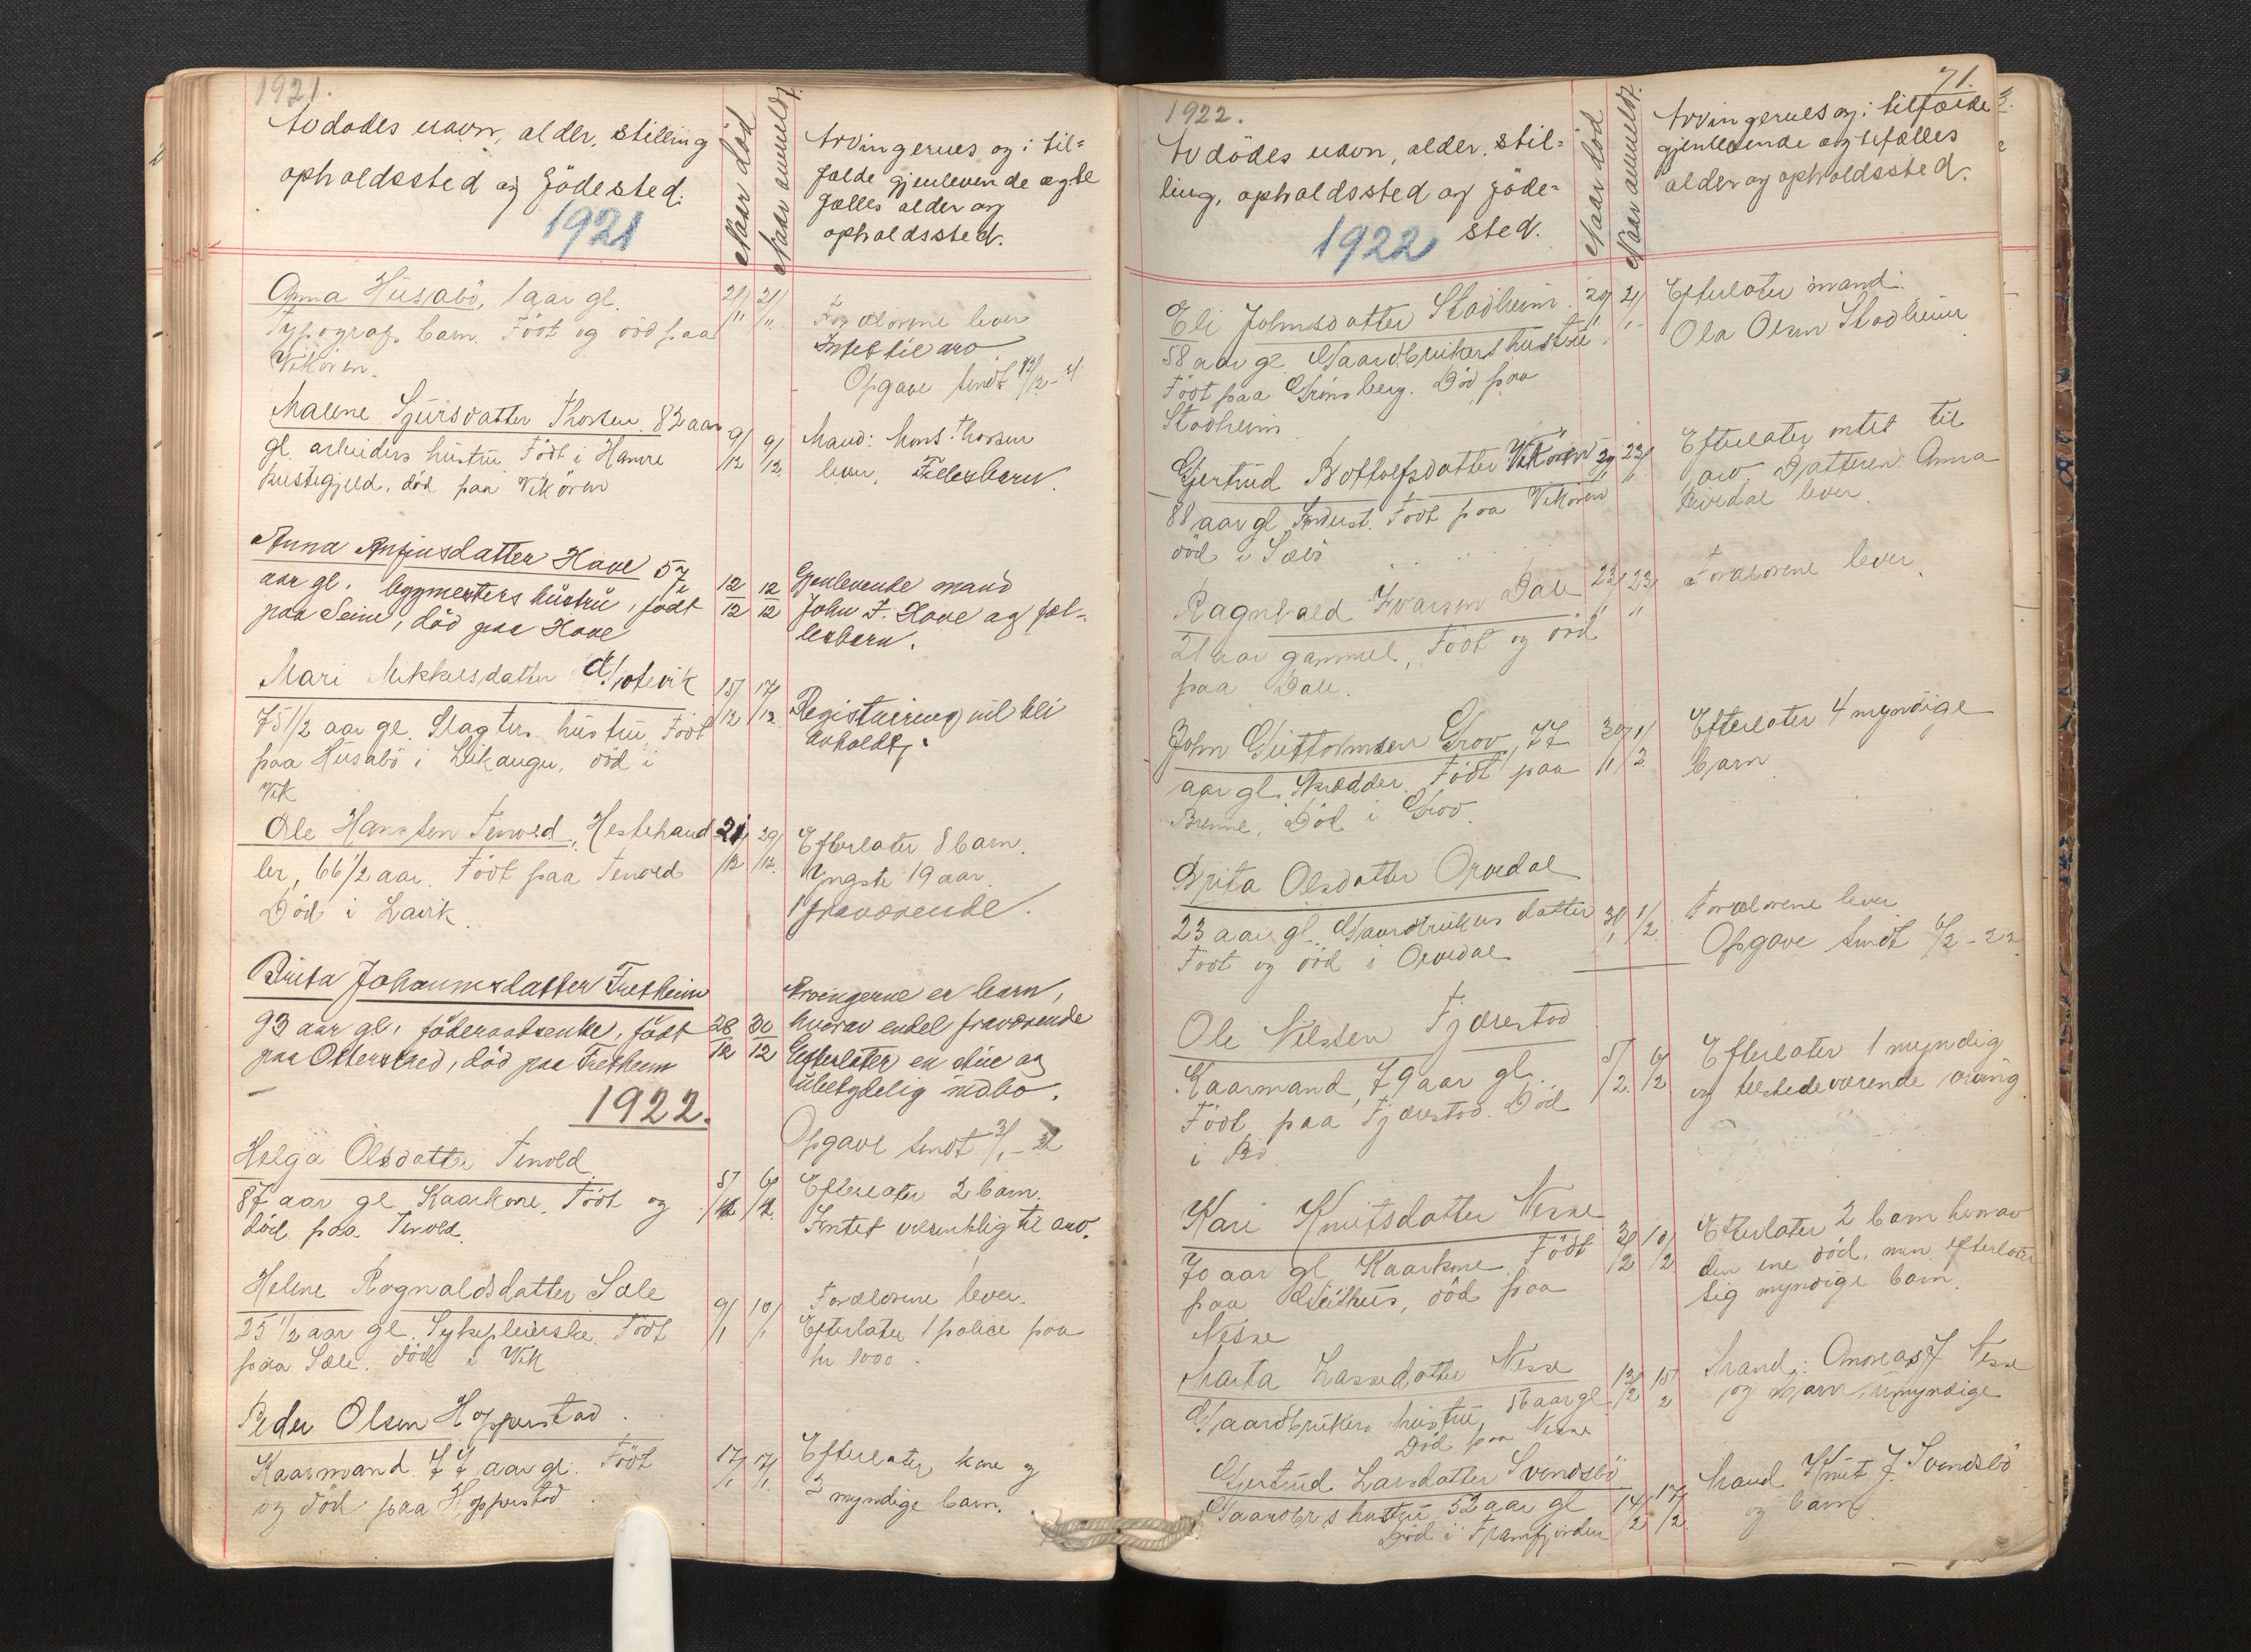 1921.
Avdödes navn, alder, stilling
opholdssted og födested.
1921
Naar död
Naar anmeldt.
Arvingernes og i til=
fælde gjenlevende ægte
fælles alder og
opholdssted.
Anna Husabö, 1 aar gl.
Typograf barn. Födt og död paa
Vikören.
21/11 21/11
Forældrene lever
Intet til arv.
Opgave sendt /12 - 21
Malene Sjursdatter Thorsen. 82 aar
gl. arbeiders hustru. Födt i Hamre
prestegjeld, död paa Vikören
9/12 9/12.
Mand: Mons Thorsen
lever, Fellesbarn.
Anna Anfinsdatter Hove 57
aar gl. byggmesters hustru, födt
paa Seim, död paa Hove
12/12 12/12
Gjenlevende mand
John I. Hove og fæl-
lesbarn.
Mari Mikkelsdatter
75 1/2 aar gl. Slagters hustru Födt
paa Husabö i Leikanger, död i
Vik
15/12 17/12.
Registrering vil bli
avholdt.
Ole Hansen Tenold, Hestehand
ler, 66 1/2 aar. Födt paa Tenold
Död i Lavik.
21/12. 29/12.
Efterlater 8 barn.
Yngste 19 aar.
1 fraværende.
Brita Johannesdatter Fretheim
93 aar gl. föderaadsenke, födt
paa Otterskred, död paa Fretheim
28/12 30/12
Arvingerne er barn,
hvorav endel fraværende
Efterlater en stue og
ubetydelig indbo.
Opgave sendt 3/1 - 22
1922.
Helga Olsdatter Tenold
87 aar gl. Kaarkone. Födt og
död paa Tenold.
5/1 6/1
Efterlater 2 barn.
Intet væsentlig til arv.
Helene Ragnaldsdatter Sæle
25 1/2 aar gl. Sykepleierske. Födt
paa Sæle. död i Vik
9/1 10/1
Forældrene lever.
Efterlater 1 police paa
kr 1000.
Peder Olsen Hopperstad
Kaarmand. 77 aar gl. Födt
og död paa Hopperstad
17/1 17/1.
Efterlater kone og
myndige barn.
71.
1922.
Avdödes navn, alder, stil=
ling, opholdssted og föde=
sted.
1922
Naar död
Naar anmeldt.
Arvingernes og i tilfælde
gjenlevende ægtefælles
alder og opholdssted.
Eli Johnsdatter Stadheim.
58 aar gl. Gaardbrukers hustru.
Födt paa Grönsberg. Död paa
Stadheim
20/1 21/1
Efterlater mand:
Ola Olsen Stadheim
Gjertrud Botholfsdatter Vikören
88 aar gl Födt paa Vikören
död i Sæbö
22/1
Efterlater intet til
arv. Datteren Anna
lever.
Ragnvald Ivarsen Dale
21 aar gammel, Födt og död
paa Dale.
23/1 23/1
Forældrene lever.
John Guttormsen Grov, 77
aar gl. Skrædder. Födt paa
Brenne. Död i Grov.
30/1 1/2
Efterlater 4 myndige
barn
Brita Olsdatter Orvedal
23 aar gl. Gaardbrukers datter
Födt og död i Orvedal
31/1 1/2
Forældrene lever
Opgave sendt 6/2 - 22
Ole Nilsen Fjærestad
Kaarmand, 79 aar gl.
Födt paa Fjærestad. Död
i Bö
5/2. 6/2
Efterlater 1 myndig
og tilstedeværende arving
Kari Knutsdatter Nesse
70 aar gl Kaarkone. Födt
paa, död paa
Nesse
10/2
Efterlater 2 barn hvorav
den ene död, men efterlater
sig myndige barn.
Marta Lassedatter Nesse
Gaardbrukers hustru, 56 aar gl
Död paa Nesse
13/2 15/2
Mand: Andreas J Nesse
og barn, umyndige
Gjertrud Larsdatter Svendsbö
Gaardbr.s hustru 52 aar gl
Död i Framfjorden
14/2 17/2
Mand Knut J. Svendsbö
og barn